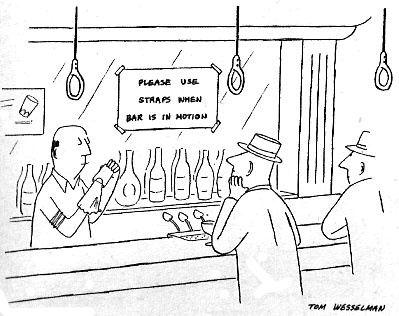 PLEASE USE
STRAPS WHEN
BAR IS IN MOTION
TOM WESSELMAN